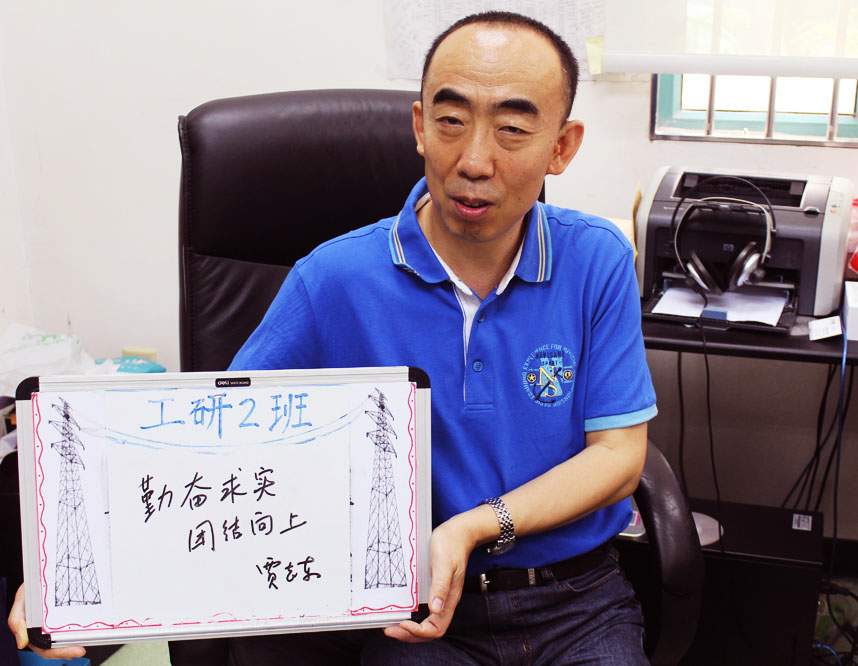 deli
工研2班
勤奋求实
团结向上
贾志东
hp